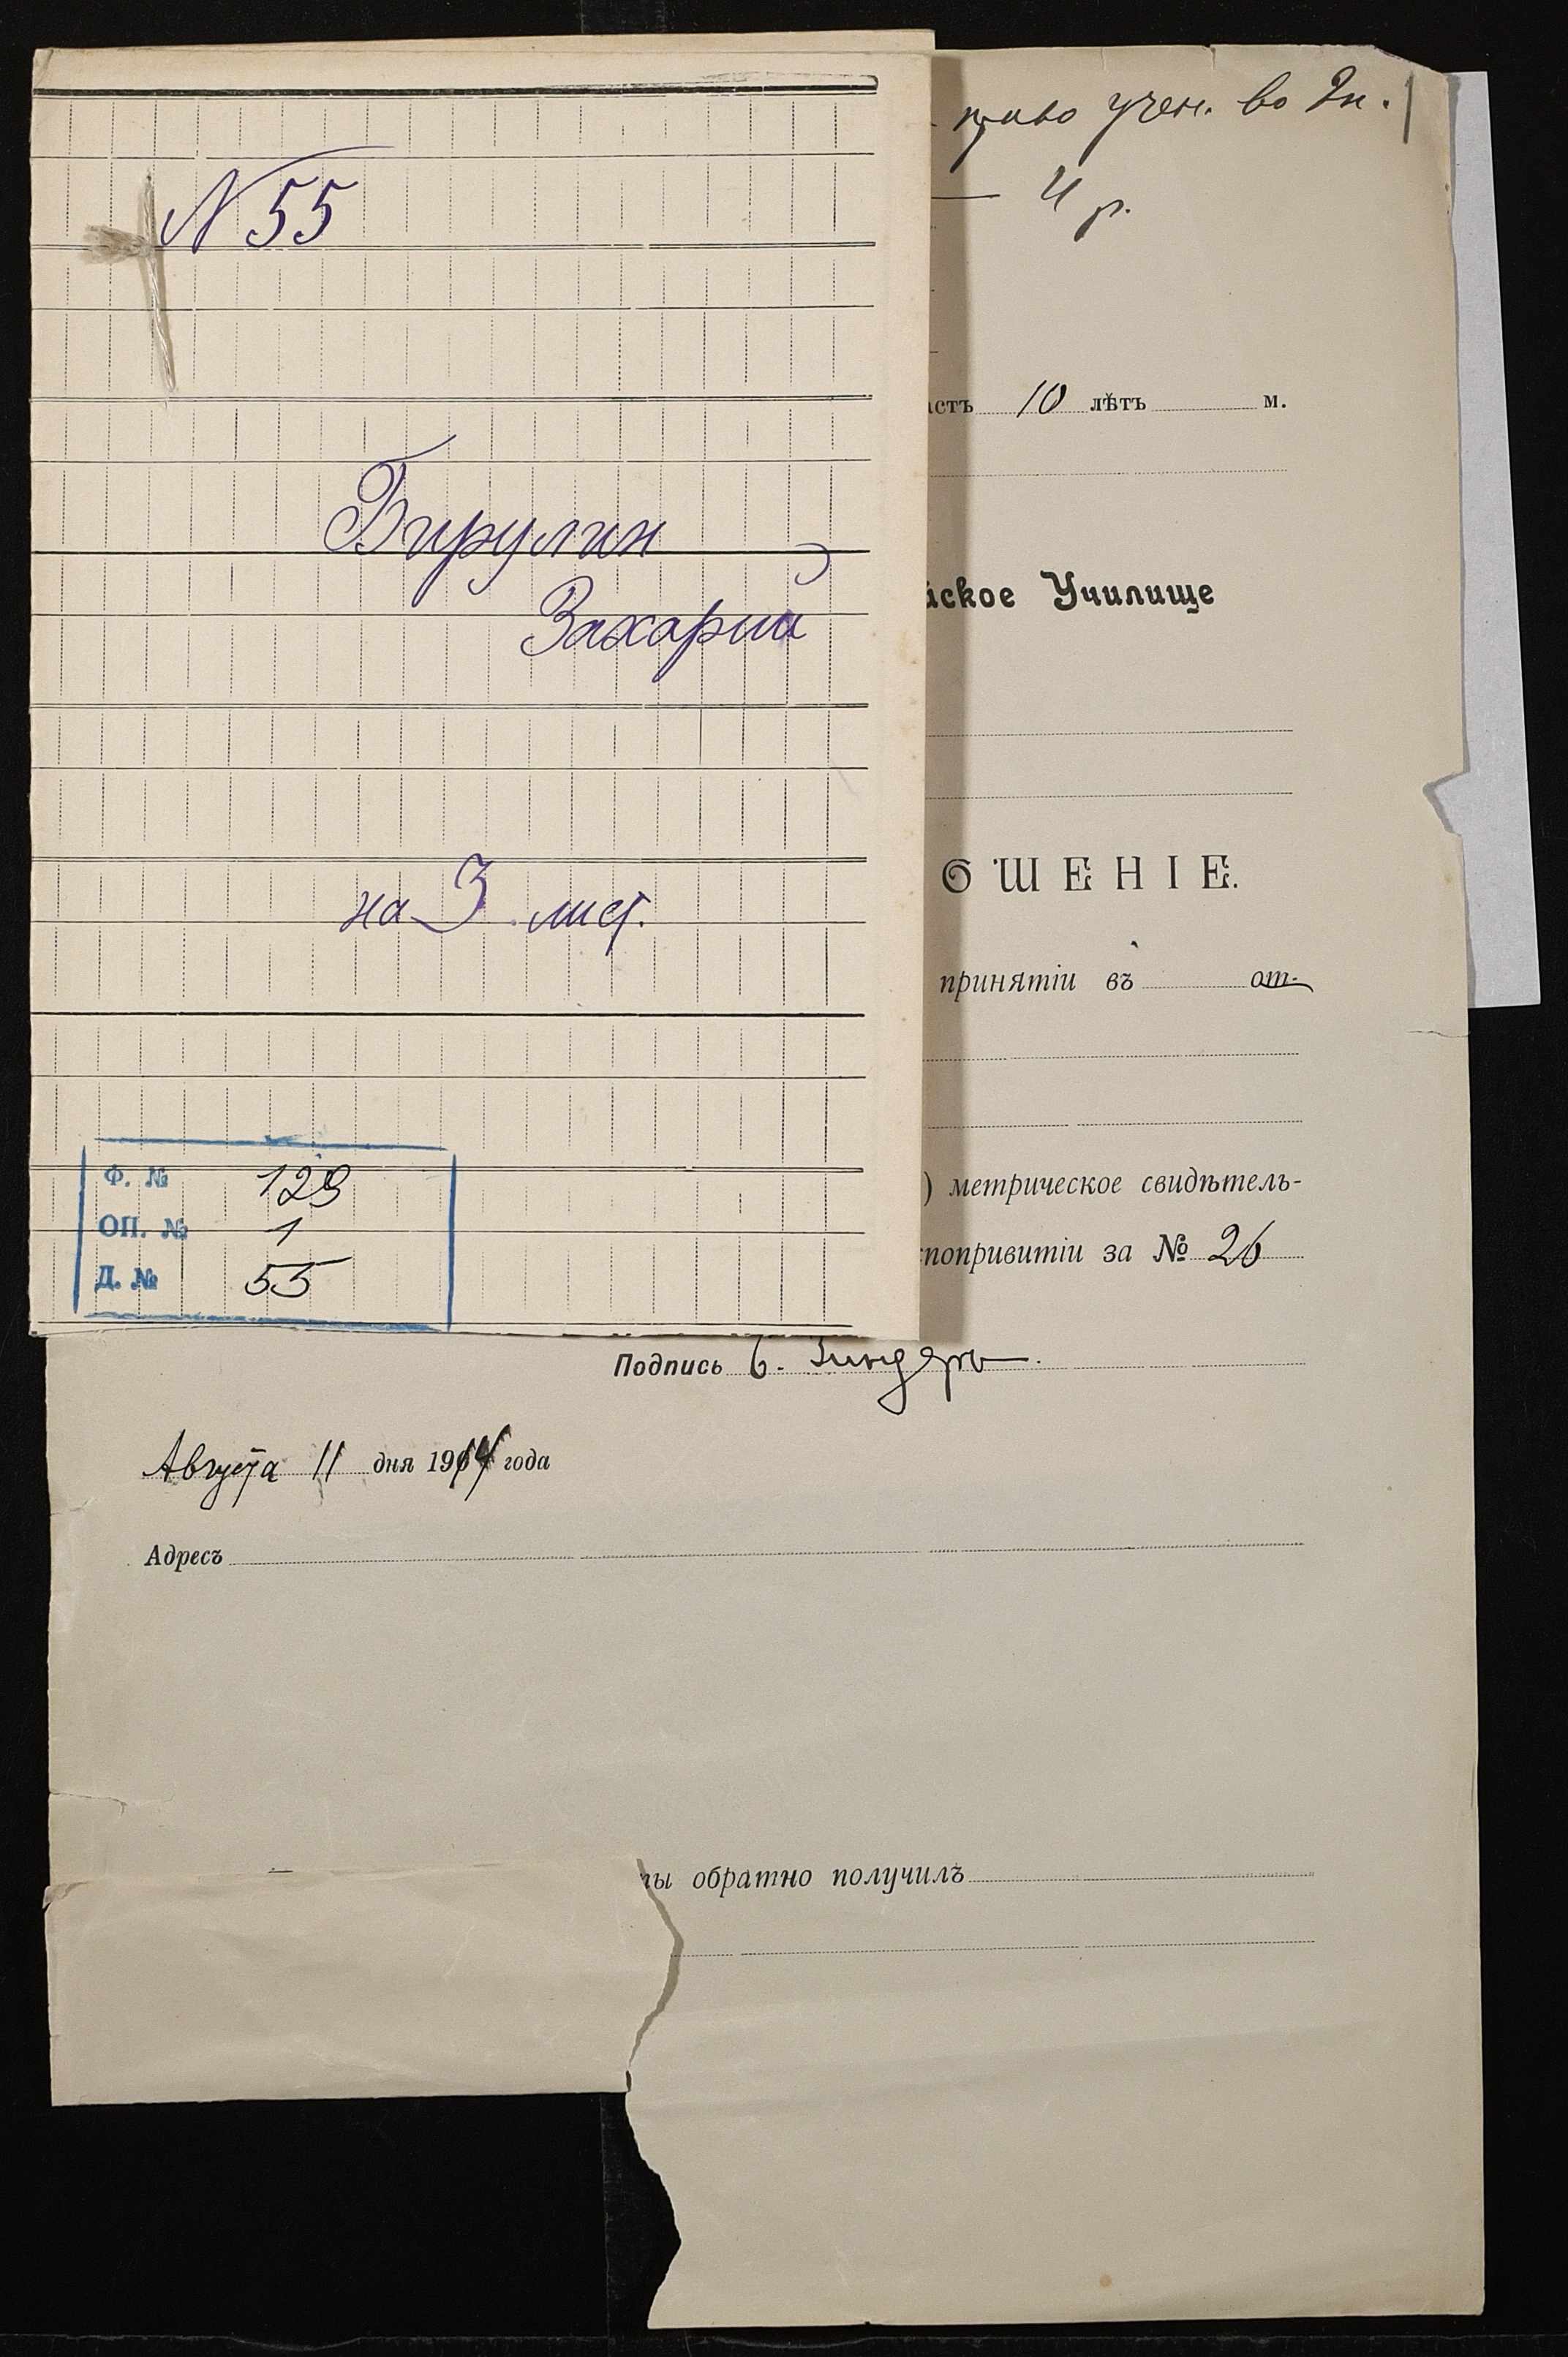 N 55
Бирулин
Захарий
на 3 лист.
Ф. № 129
ОП. № 1
Д. № 55
право учен. во 2 к.
4 р.
стъ 10 лѣтъ м.
йское Училище
ОШЕНІЕ.
принятіи въ от-
) метрическое свидѣтель-
попривитіи за № 26
Подпись
Августа 11 дня 1914 года
Адресъ
ты обратно получилъ